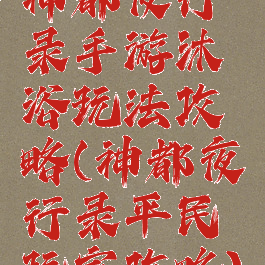 神都夜行
录手游沐
浴玩法攻
略(神都夜
行录平民
玩家攻略)